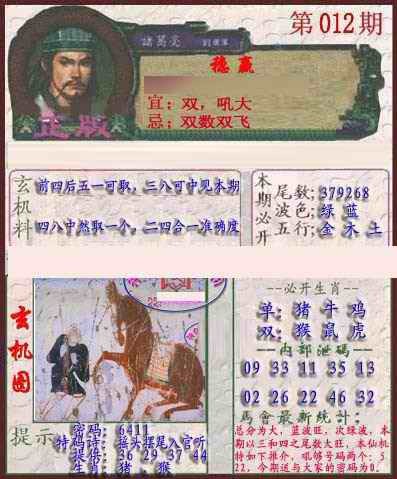 第012期
諸葛亮
稳赢
宜：双，吼大
忌：双数双飞
正版
玄机料
前四后五一可取，三八可中见本期
四八中然取一个，二四合一准确度
本期必开
尾数；379268
波色；绿 蓝
五行；金 木 土
--必开生肖--
单：猪 牛 鸡
双：猴 鼠 虎
--内部泄码--
09 33 11 35 13
02 26 22 46 32
玄机图
提示
密码：6411
特码诗：摇头摆尾入官听
提倍：36 29 37 44
生肖：猪．猴
馬會最新統計：
总分为大，蓝波旺，次绿波，本
期以三和四之尾数大旺，本仙机
特如下推介，吼够号码两个：5
22，今期送与大家的密码为0。